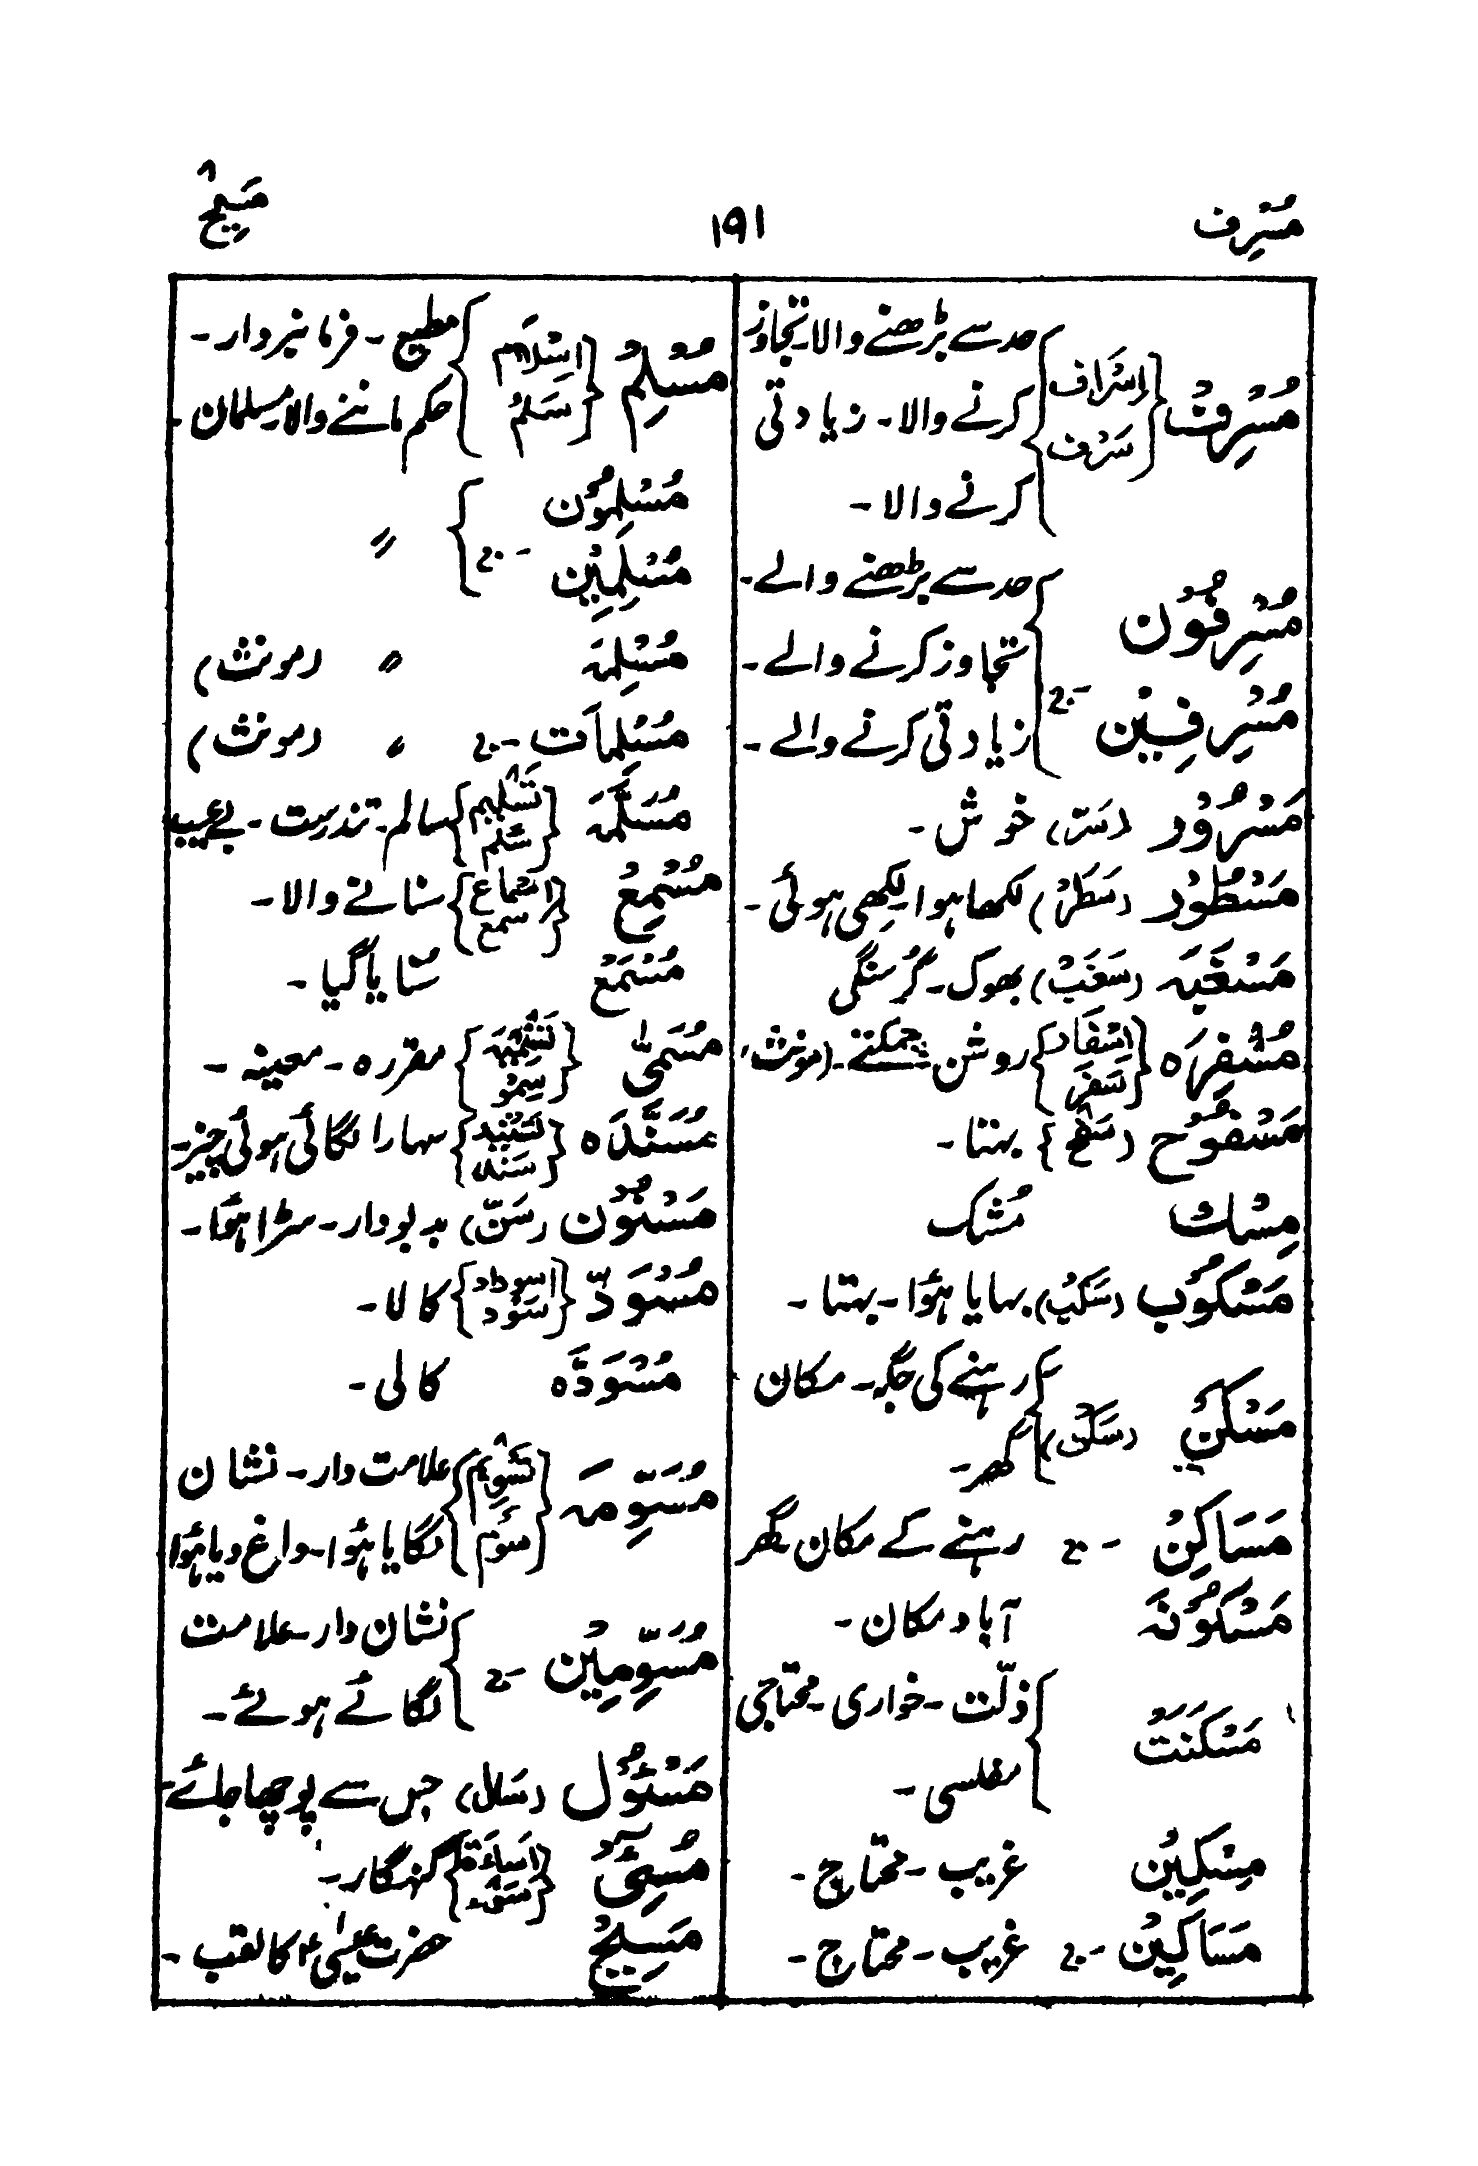 مُسْرِف ۱۹۱ مَسِیْح
مُسْرِفٌ {اِسْرَاف سَرَف} حد سے بڑھنے والا۔ تجاوز
کرنے والا۔ زیادتی
کرنے والا۔
مُسْرِفُوْن حد سے بڑھنے والے۔
تجاوز کرنے والے۔
مُسْرِفِیْن ۔ج زیادتی کرنے والے۔
مَسْرُوْر (سَرّ) خوش۔
مَسْطُوْر (سَطَرْ) لکھا ہوا۔ لکھی ہوئی۔
مَسْغَبَہ (سَغَبْ) بھوک۔ گُرسنگی
مُسْفِرَہ {اِسْفَار سَفَر} روشن۔ چمکتے۔ (مونث)
مَسْفُوْح (سَفْح) بہتا۔
مِسْك مُشک
مَسْكُوْب (سَكَبْ) بہایا ہوٗا۔ بہتا۔
مَسْكَنْ (سَكَنْ) رہنے کی جگہ۔ مکان
گھر۔
مَسَاكِنْ ۔ج رہنے کے مکان گھر
مَسْكُوْنَہ آباد مکان۔
مَسْكَنَت ذلّت۔ خواری۔ محتاجی
مفلسی۔
مِسْكِیْن غریب۔ محتاج۔
مَسَاكِیْن ۔ج غریب۔ محتاج۔
مُسْلِمْ {اِسْلَام سَلَمْ} مطیع۔ فرمانبردار۔
حکم ماننے والا۔ مسلمان۔
مُسْلِمُوْن
مُسْلِمِیْن ۔ج 〃
مُسْلِمَہ 〃 (مونث)
مُسْلِمَات ۔ج 〃 (مونث)
مُسَلَّمَہ {تَسْلِیْم سَلَم} سالم۔ تندرست۔ بے عیب
مُسْمِعْ {اِسْمَاع سمع} سنانے والا۔
مُسْمَعْ سُنایا گیا۔
مُسَمّٰی {تَسْمِیَہ سِمُو} مقررہ۔ معینہ۔
مُسَنَّدَہ {تَسْنِیْد سَنَد} سہارا لگائی ہوئی چیز۔
مَسْنُوْن (سَنّ) بدبودار۔ سڑا ہوٗا۔
مُسْوَدّ {اسوداد سَوْد} کالا۔
مُسْوَدَّہ کالی۔
مُسَوِّمَہ {تَسْوِیْم سَوْم} علامت دار۔ نشان
لگایا ہوٗا۔ داغ دیا ہوٗا
مُسَوِّمِیْن ۔ج نشان دار۔ علامت
لگائے ہوئے۔
مَسْئُوْل (سَلال) جس سے پوچھا جائے۔
مُسِیْٓئُ {اِسَاءَۃ سَوْء} گنہگار۔
مَسِیْحُ حضرت عیسٰی ؑ کا لقب۔